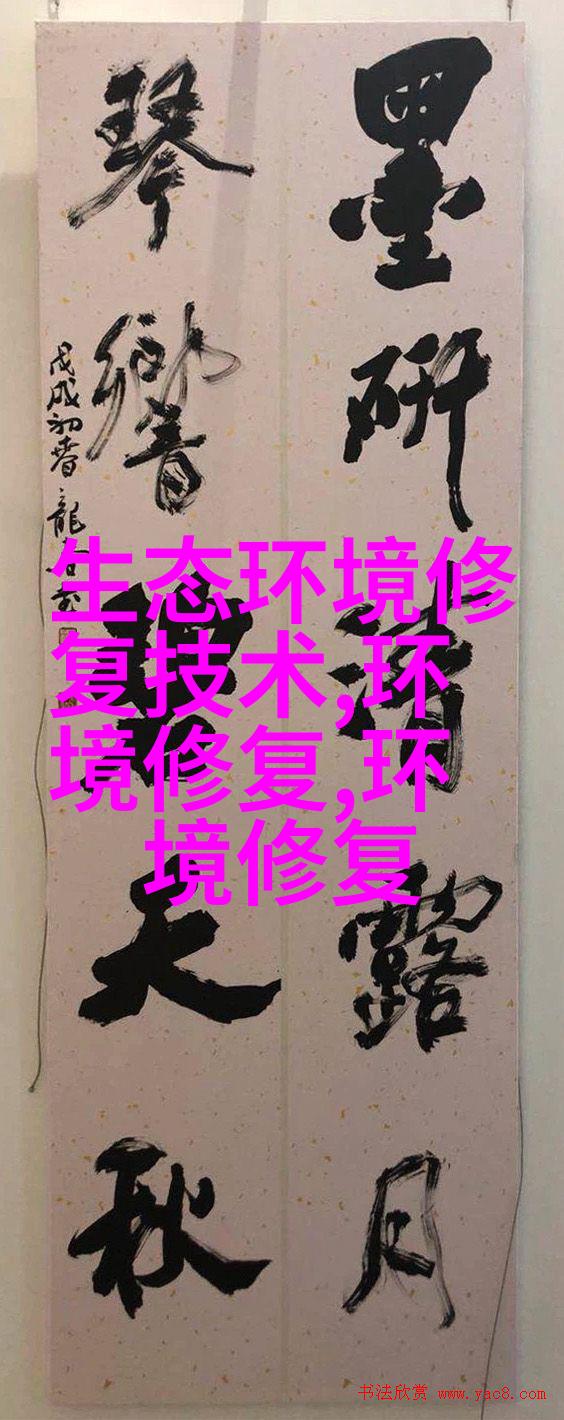 墨研清露月
琴響碧天秋
戊戌初春龍
生态环境修
复技术,环
境修复,环
境修复
书法欣赏 www.yac8.com